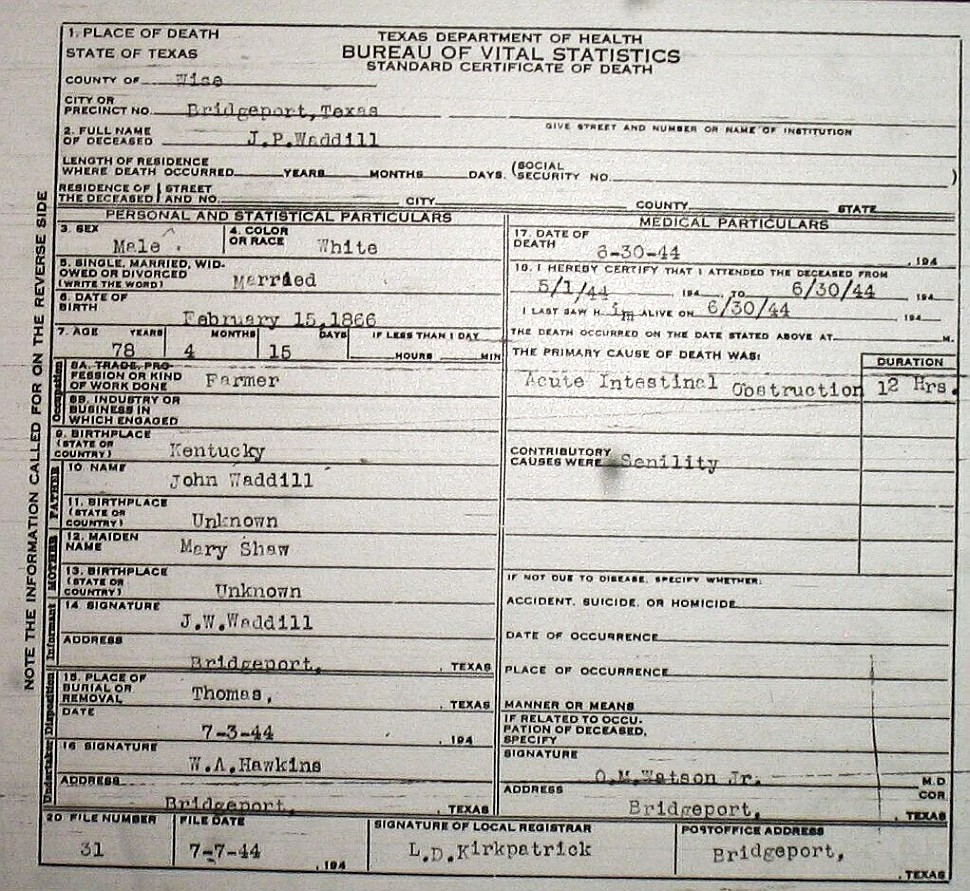 1. PLACE OF DEATH
STATE OF TEXAS
TEXAS DEPARTMENT OF HEALTH
BUREAU OF VITAL STATISTICS
STANDARD CERTIFICATE OF DEATH
COUNTY OF Wise
CITY OR
PRECINCT NO. Bridgeport,Texas
GIVE STREET AND NUMBER OR NAME OF INSTITUTION
2. FULL NAME
OF DECEASED J.P.Waddill
LENGTH OF RESIDENCE
WHERE DEATH OCCURRED YEARS MONTHS DAYS. (SOCIAL
SECURITY NO. )
RESIDENCE OF THE DECEASED STREET AND NO. CITY COUNTY STATE
PERSONAL AND STATISTICAL PARTICULARS
3. SEX Male
4. COLOR
OR RACE White
5. SINGLE, MARRIED, WID-
OWED OR DIVORCED
(WRITE THE WORD) Married
6. DATE OF
BIRTH February 15,1866
7. AGE YEARS MONTHS DAYS IF LESS THAN 1 DAY
78 4 15 HOURS MIN
Occupation
8A. TRADE, PRO-
FESSION OR KIND
OF WORK DONE Farmer
8B. INDUSTRY OR
BUSINESS IN
WHICH ENGAGED
9. BIRTHPLACE
(STATE OR
COUNTRY) Kentucky
FATHER
10 NAME
John Waddill
11. BIRTHPLACE
(STATE OR
COUNTRY) Unknown
MOTHER
12. MAIDEN
NAME Mary Shaw
13. BIRTHPLACE
(STATE OR
COUNTRY) Unknown
Informant
14. SIGNATURE
J.W.Waddill
ADDRESS
Bridgeport, , TEXAS
Disposition
15. PLACE OF
BURIAL OR
REMOVAL Thomas, , TEXAS
DATE
7-3-44 , 194
Undertaker
16 SIGNATURE
W.A.Hawkins
ADDRESS
Bridgeport, , TEXAS
MEDICAL PARTICULARS
17. DATE OF
DEATH 6-30-44 , 194
18. I HEREBY CERTIFY THAT I ATTENDED THE DECEASED FROM
5/1/44 194 , TO 6/30/44 , 194
I LAST SAW H im ALIVE ON 6/30/44 194
THE DEATH OCCURRED ON THE DATE STATED ABOVE AT M.
THE PRIMARY CAUSE OF DEATH WAS: DURATION
Acute Intestinal Obstruction 12 Hrs.
CONTRIBUTORY
CAUSES WERE Senility
IF NOT DUE TO DISEASE, SPECIFY WHETHER:
ACCIDENT, SUICIDE, OR HOMICIDE
DATE OF OCCURRENCE
PLACE OF OCCURRENCE
MANNER OR MEANS
IF RELATED TO OCCU-
PATION OF DECEASED,
SPECIFY
SIGNATURE
O.M.Watson Jr. M.D
COR
ADDRESS
Bridgeport, , TEXAS
20 FILE NUMBER
31
FILE DATE
7-7-44 , 194
SIGNATURE OF LOCAL REGISTRAR
L.D.Kirkpatrick
POSTOFFICE ADDRESS
Bridgeport,
, TEXAS
NOTE THE INFORMATION CALLED FOR ON THE REVERSE SIDE